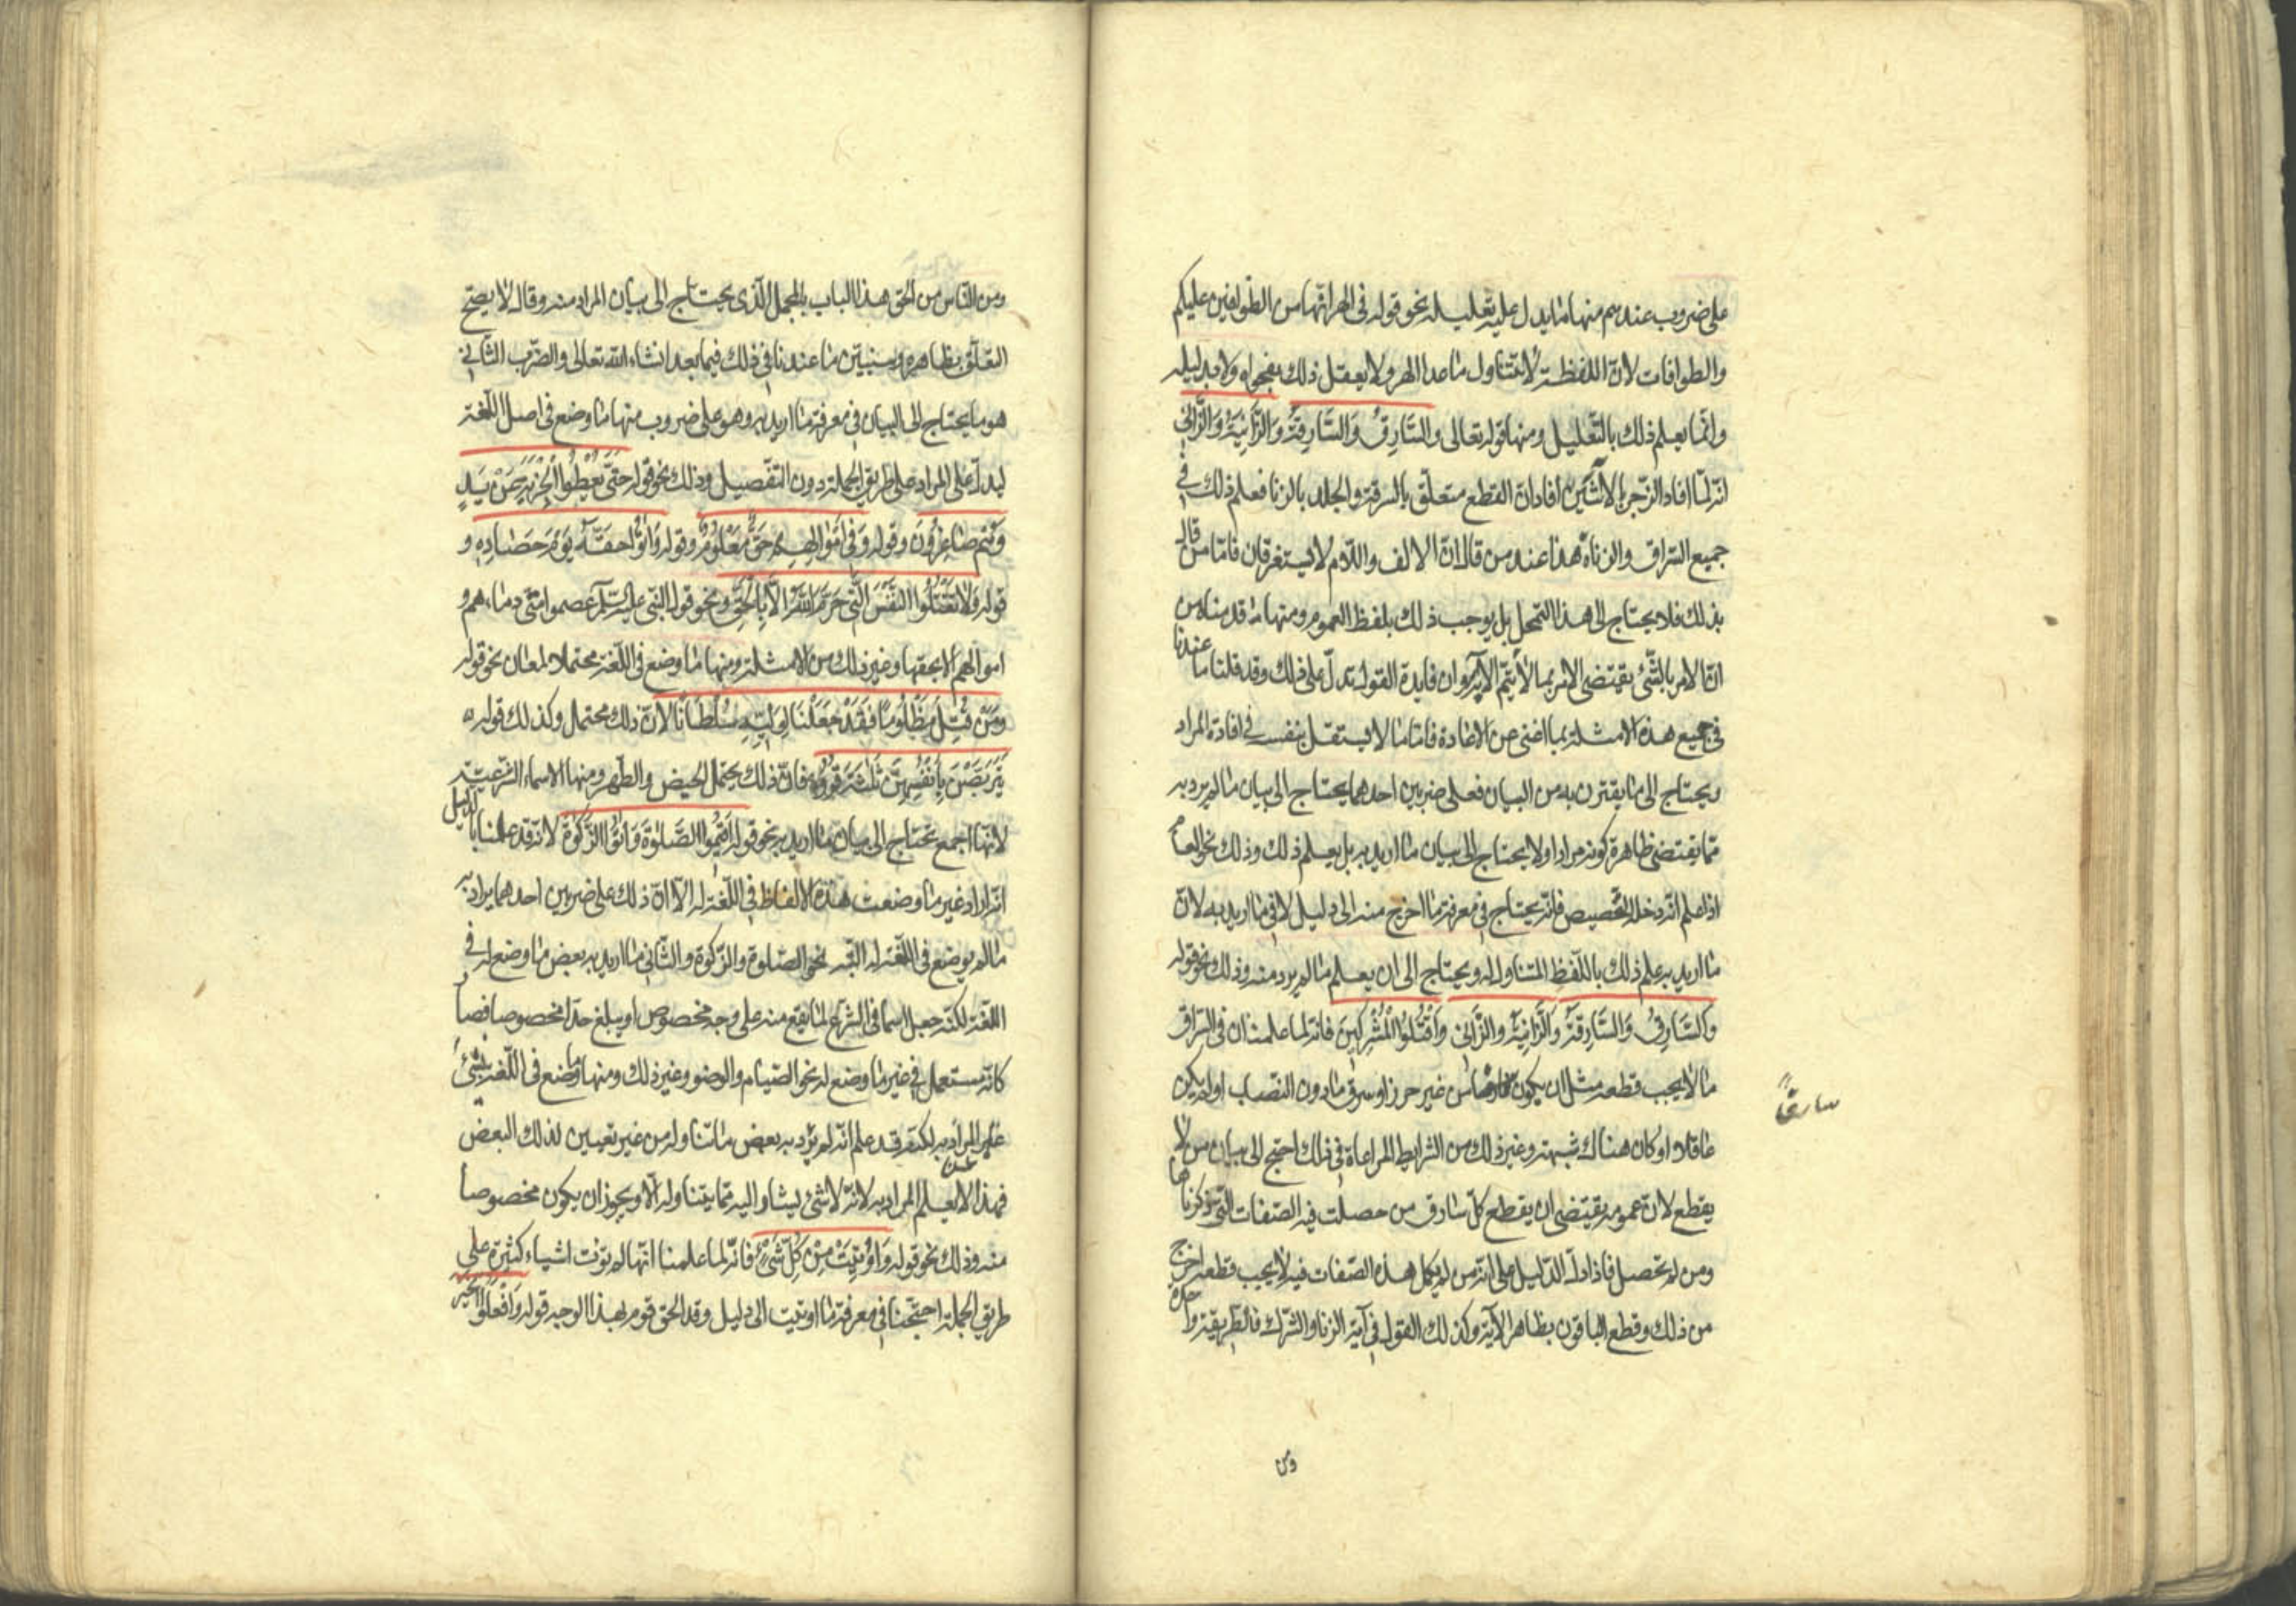 على ضروب عندهم منها ما يدل عليه تعليله نحو قوله في الهر انّها من الطوافين عليكم
والطوافات لانّ اللفظة لا تتناول ما عدا الهر ولا يعقل ذلك بفحواه ولا بدليله
وانّما يعلم ذلك بالتّعليل ومنها قوله تعالى والسَّارِقُ وَالسَّارِقَةُ وَالزَّانِيَةُ وَالزَّانِي
انّه لمّا افاد الزّجر بالآيتين افاد انّ القطع متعلّق بالسرقة والجلد بالزنا فعلم ذلك في
جميع السّراق والزناة هذا عند من قال انّ الالف واللّام لا يستغرقان فامّا من قال
بذلك فلا يحتاج الى هذا التمحل بل يوجب ذلك بلفظ العموم ومنها ما قدمناه من
انّ الامر بالشّئ يقتضى الامر بما لا يتمّ الا به وان فايدة القول تدلّ على ذلك وقد قلنا ما عندنا
في جميع هذه الامثلة بما اغنى عن الاعادة فامّا ما لا يستقل بنفسه في افادة المراد
ويحتاج الى ما يقترن به من البيان فعلى ضربين احدهما يحتاج الى بيان ما لم يرد به
ممّا يقتضى ظاهره كونه مرادا ولا يحتاج الى بيان ما اريد به بل يعلم ذلك وذلك نحو العام
اذا علم انّه دخله التّخصيص فانّه يحتاج في معرفة ما اخرج منه الى دليل لا في ما اريد به لانّ
ما اريد به علم ذلك باللّفظ المتناول له ويحتاج الى ان يعلم ما لم يرد منه وذلك نحو قوله
وَالسَّارِقُ وَالسَّارِقَةُ وَالزَّانِيَةُ والزَّانِي وَاقْتُلُوا الْمُشْرِكِينَ فانّه لما علمنا ان في السّراق
ما لا يجب قطعه مثل ان يكون من غير حرز او سرق ما دون النّصاب او لم يكن
سارقا
عاقلا او كان هناك شبهة وغير ذلك من الشرايط المراعاة في ذلك احتج الى بيان من لا
يقطع لانّ عمومه يقتضى ان يقطع كلّ سارق من حصلت فيه الصّفات التي ذكرناها
ومن لم تحصل فاذا دلّ الدّليل على انّ من لم يكمل هذه الصّفات فيه لا يجب قطعه اخرج
من ذلك وقطع الباقون بظاهر الآية وكذلك القول في آية الزنا والشرك فالطريقة واحدة
ومن
ومن النّاس من الحق هذا الباب بالمجمل الّذى يحتاج الى بيان المراد منه وقال لا يصحّ
التعلّق بظاهره وسنبيّن ما عندنا في ذلك فيما بعد انشاء الله تعالى والضّرب الثّاني
هو ما يحتاج الى البيان في معرفة ما اريد به وهو على ضروب منها ما وضع في اصل اللّغة
ليدلّ على المراد على طريق الجملة دون التفصيل وذلك نحو قوله حَتَّى يُعْطُوا الْجِزْيَةَ عَنْ يَدٍ
وَهُمْ صَاغِرُونَ وقوله وَفِي أَمْوَالِهِمْ حَقٌّ مَعْلُومٌ وقوله وَآتُوا حَقَّهُ يَوْمَ حَصَادِهِ و
قوله وَلَا تَقْتُلُوا النَّفْسَ الَّتِي حَرَّمَ اللَّهُ الَّا بِالْحَقِّ ونحو قول النّبي عليه السّلم عصموا منّى دماءهم و
اموالهم الا بحقها وغير ذلك من الامثلة ومنها ما وضع في اللّغة محتملا لمعان نحو قوله
وَمَنْ قُتِلَ مَظْلُومًا فَقَدْ جَعَلْنَا لِوَلِيِّهِ سُلْطَانًا لانّ ذلك محتمل وكذلك قوله
يَتَرَبَّصْنَ بِأَنْفُسِهِنَّ ثَلٰثَةَ قُرُوءٍ فانّ ذلك يحتمل الحيض والطّهر ومنها الاسماء الشّرعيّة
لانّها اجمع تحتاج الى بيان ما اريد به نحو قوله اَقِيمُوا الصَّلٰوةَ وَآتُوا الزَّكٰوةَ لانّه قد علمنا بالدّليل
انّه اراد غير ما وضعت هذه الالفاظ في اللّغة له الّا انّ ذلك على ضربين احدهما يراد به
ما لم يوضع في اللّغة له البتّه نحو الصّلوة والزّكوة والثّاني ما اريد به بعض ما وضع له في
اللّغة لكنّه جعل اسما في الشرع لما يقع منه على وجه مخصوص او يبلغ حدّا مخصوصا فصار
كانّه مستعمل في غير ما وضع له نحو الصّيام والوضو وغير ذلك ومنها ما وضع في اللّغة لشئ
علم المراد به لكنه قد علم انّه لم يرد به بعض ما تناوله من غير تعيين لذلك البعض
فهذا لا يعلم المراد به لانّه لا شئ يشار اليه ممّا يتناوله الّا ويجوز ان يكون مخصوصا
منه وذلك نحو قوله وَاُوتِيَتْ مِنْ كُلِّ شَئْ فانّه لما علمنا انّها لم تؤت اشياء كثيرة على
طريق الجملة احتجنا في معرفة ما اوتيت الى دليل وقد الحق قوم بهذا الوجه قوله وَافْعَلُوا الْخَيْرَ